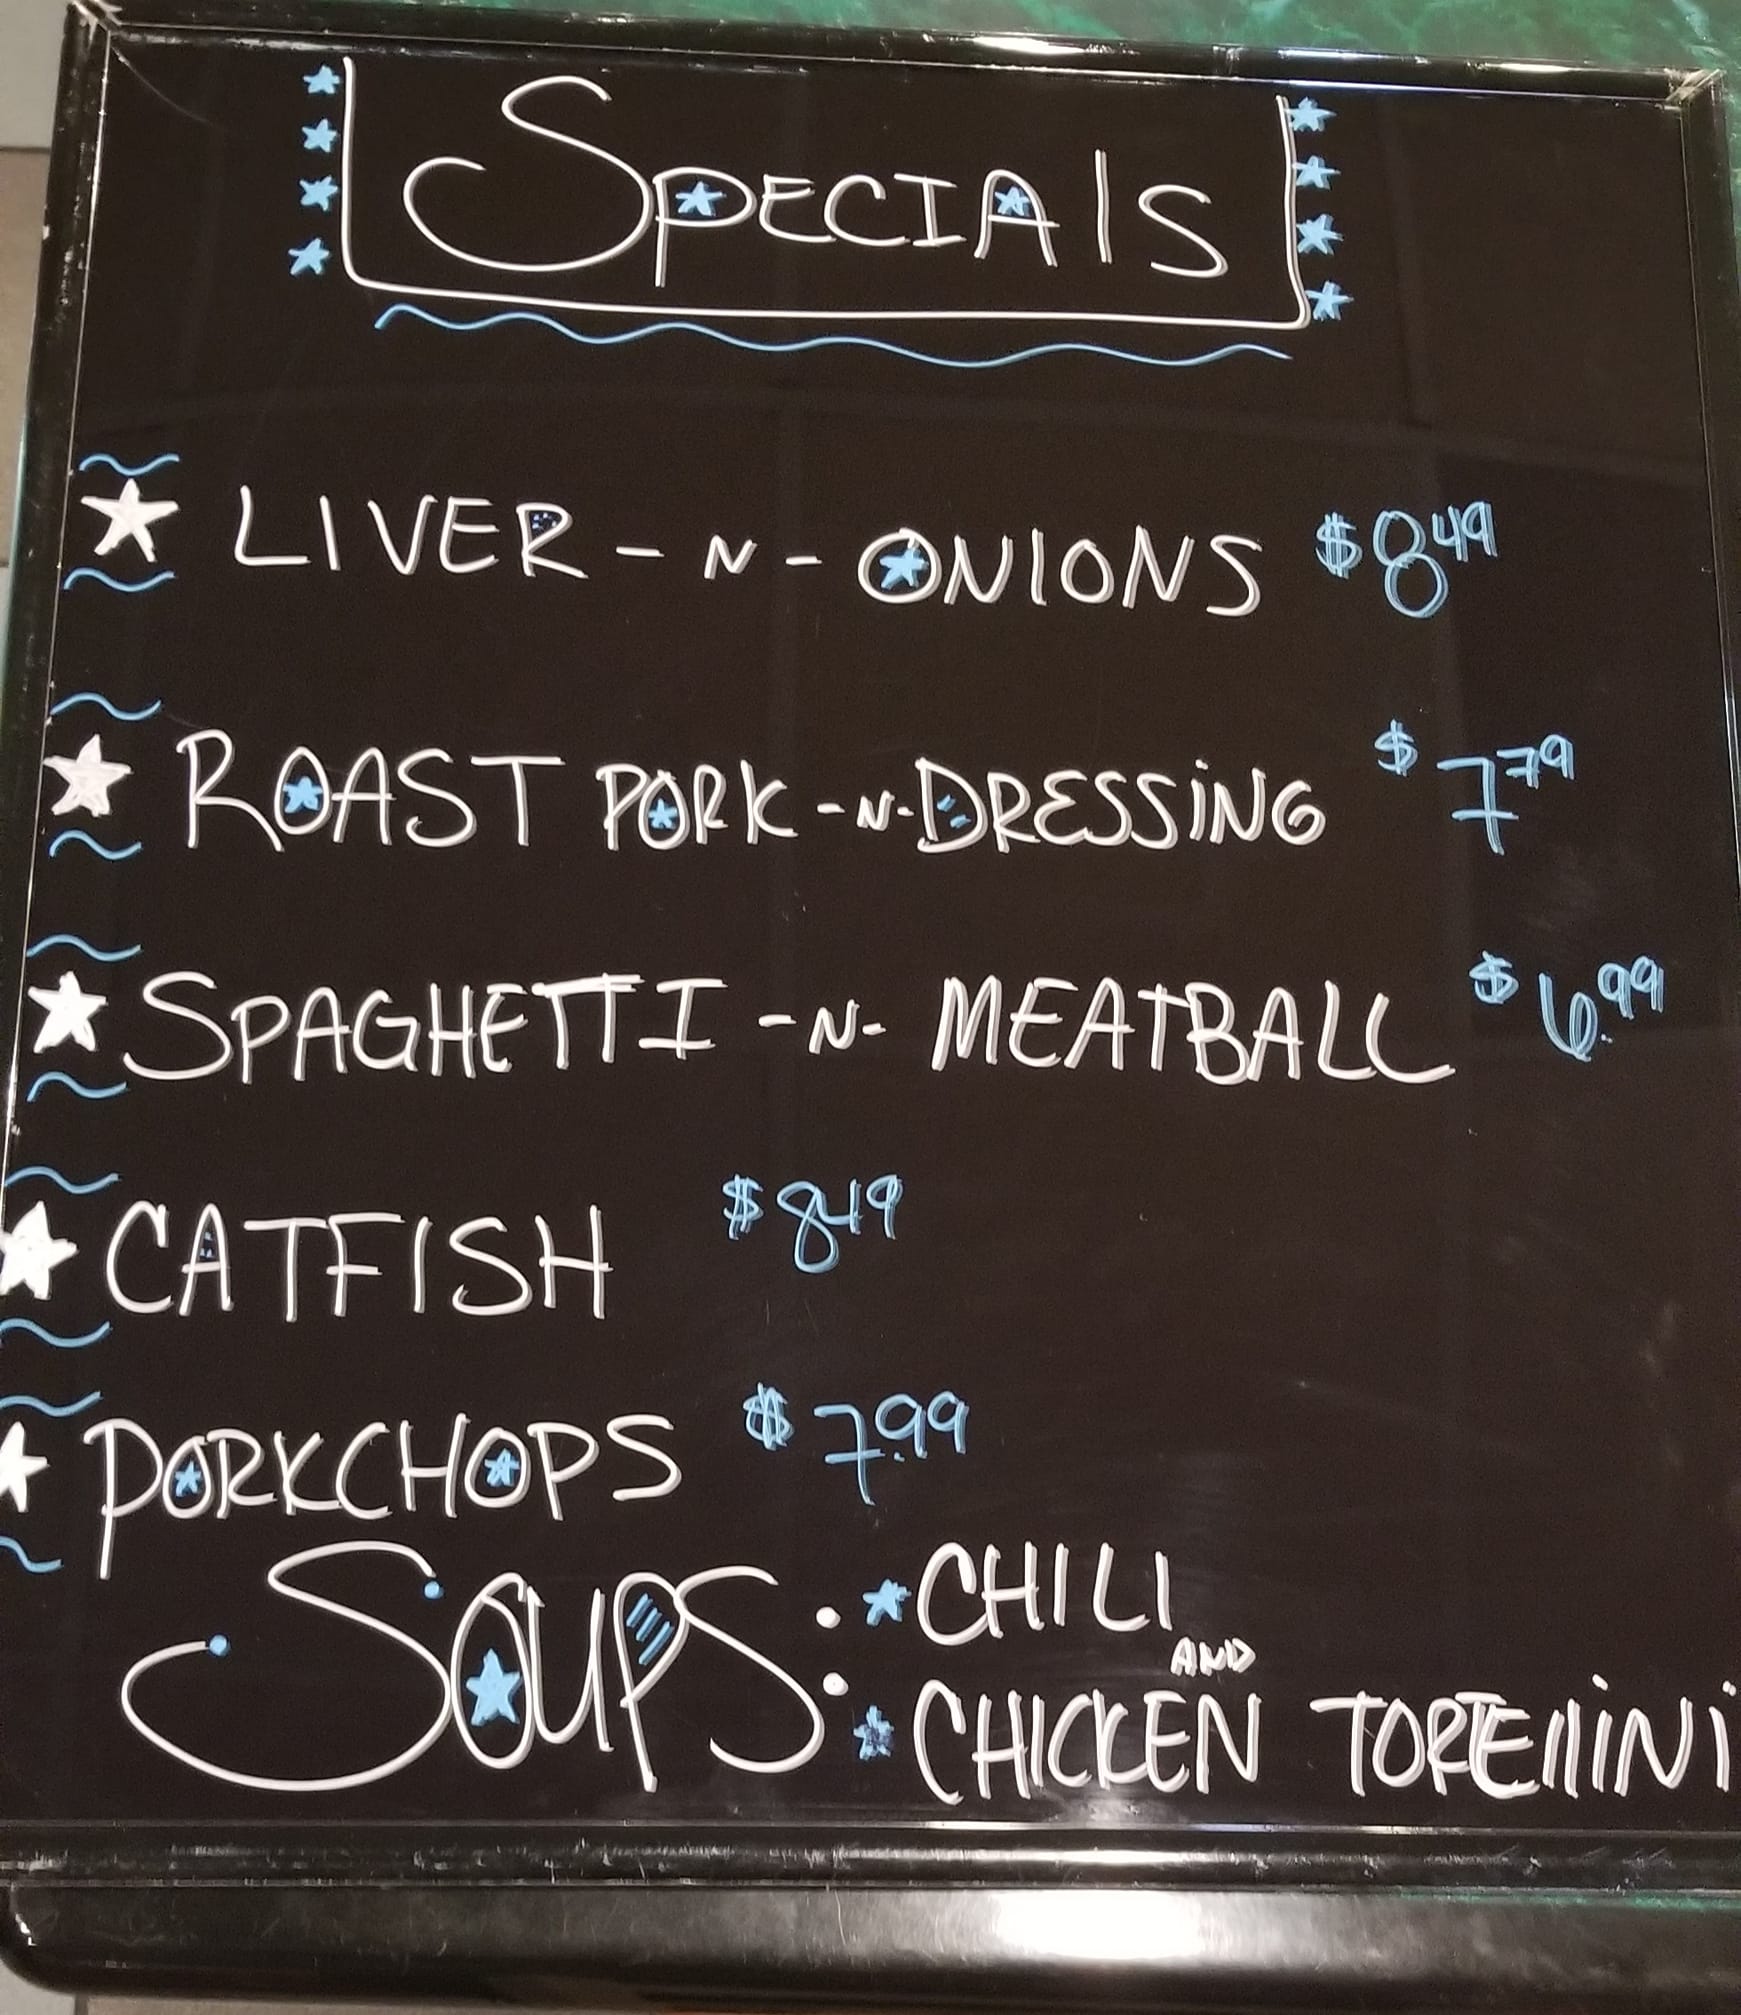 SPECIALS
LIVER - N - ONIONS $8 49
ROAST PORK -N- DRESSING $7 79
SPAGHETTI -N- MEATBALL $6.99
CATFISH $8 49
PORKCHOPS $7.99
SOUPS: CHILI
AND
CHICKEN TORTEllINI